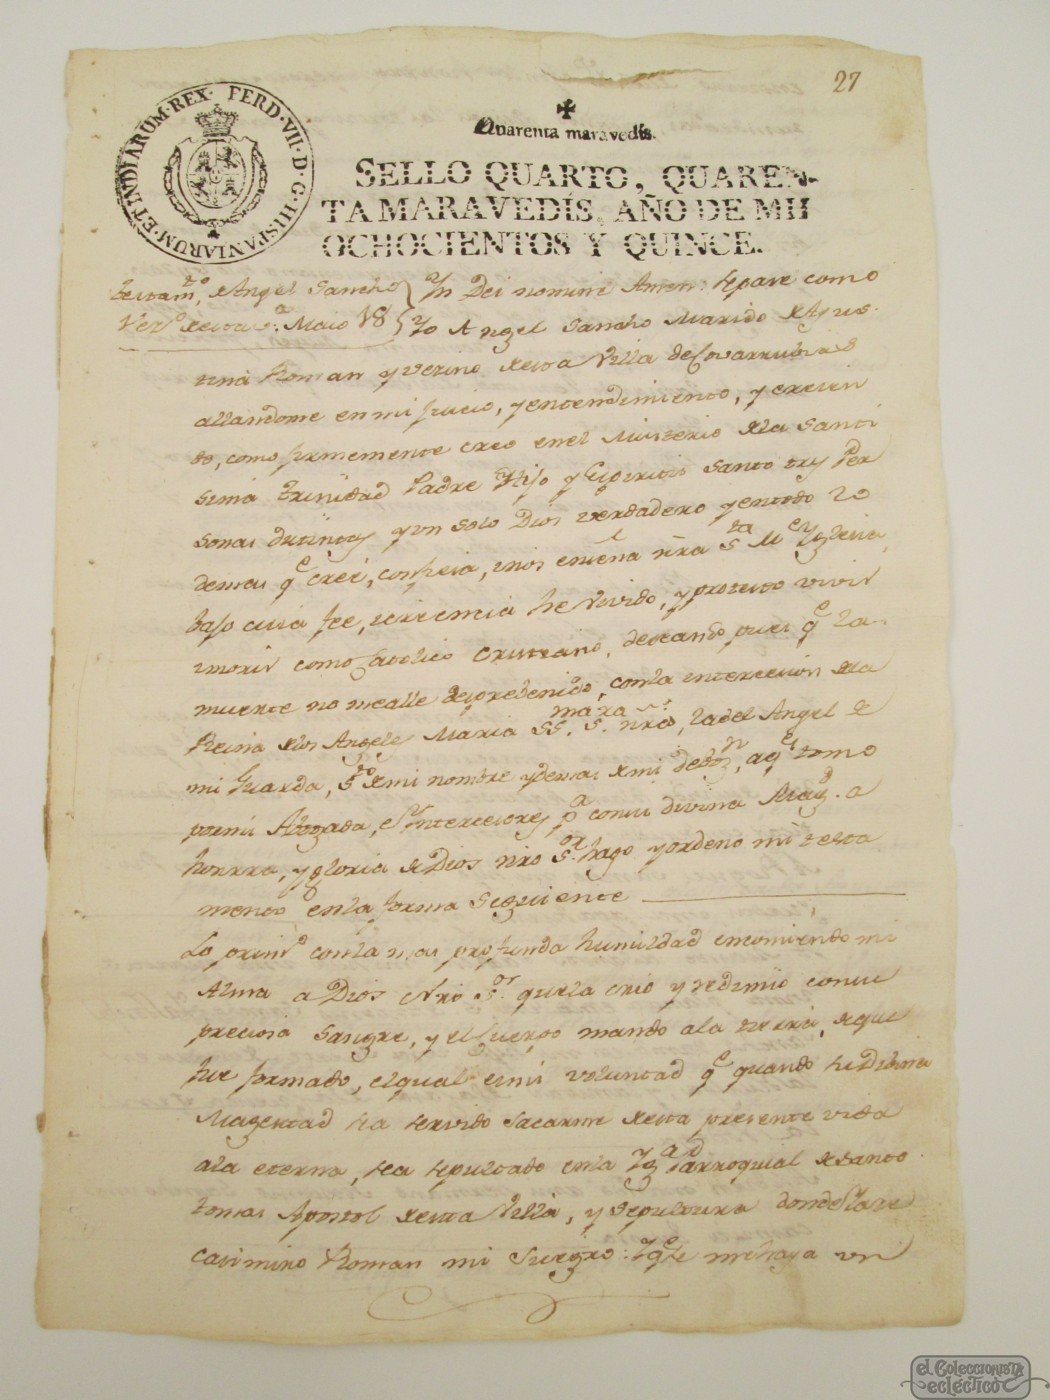 27
FERD·VII·D·G·HISPANIARUM·ET INDIARUM·REX·
Quarenta maravedis.
SELLO QUARTO, QUAREN-
TA MARAVEDIS, AÑO DE MIL
OCHOCIENTOS Y QUINCE.
Testam.to Angel Sancho
Vez.o de esta V.a Maio 18
In Dei nomine Amen: Sepase como
Yo Angel Sancho Marido de Agus-
tina Roman y vezino de esta Villa de Covarrubias
allandome en mi juicio, y entendimiento, y creien
do, como firmemente creo en el Misterio de la Santi
sima trinidad Padre Hijo y Espiritu Santo tres Per
sonas distintas y un solo Dios verdadero y en todo lo
demas q.e cree, confiesa, i nos enseña nr̃a S.ta M.e Yglesia,
bajo cuia fee, i creencia he vivido, y protesto vivir
i morir como Catolico Cristiano, deseando pues q.e la
muerte no me alle desprebenido, con la intercesion de la
Reina de los Angeles Maria SS. mã S.ra nr̃a, la del Angel de
mi Guarda, S.to de mi nombre y demas de mi deboz.n, a q.es tomo
por mi Abogada, e Intercesores p.a con su divina Mag.d a
honrra, y gloria de Dios nr̃o S.or hago y ordeno mi testa
mento en la forma Siguiente
Lo prim.o con la mas profunda humildad encomiendo mi
Alma a Dios Nr̃o S.or que la crio y redimio con su
preciosa sangre, y el Cuerpo mando a la tierra, de que
fue formado, el qual es mi voluntad q.e quando su Dibina
Magestad sea servido sacarme de esta presente vida
a la eterna, sea sepultado en la Yg.a Parroquial de Santo
tomas Apostol de esta Villa, y sepultura donde Iace
Casimiro Roman mi Suegro: Y q.e se me haga un
el Coleccionista
ecléctico